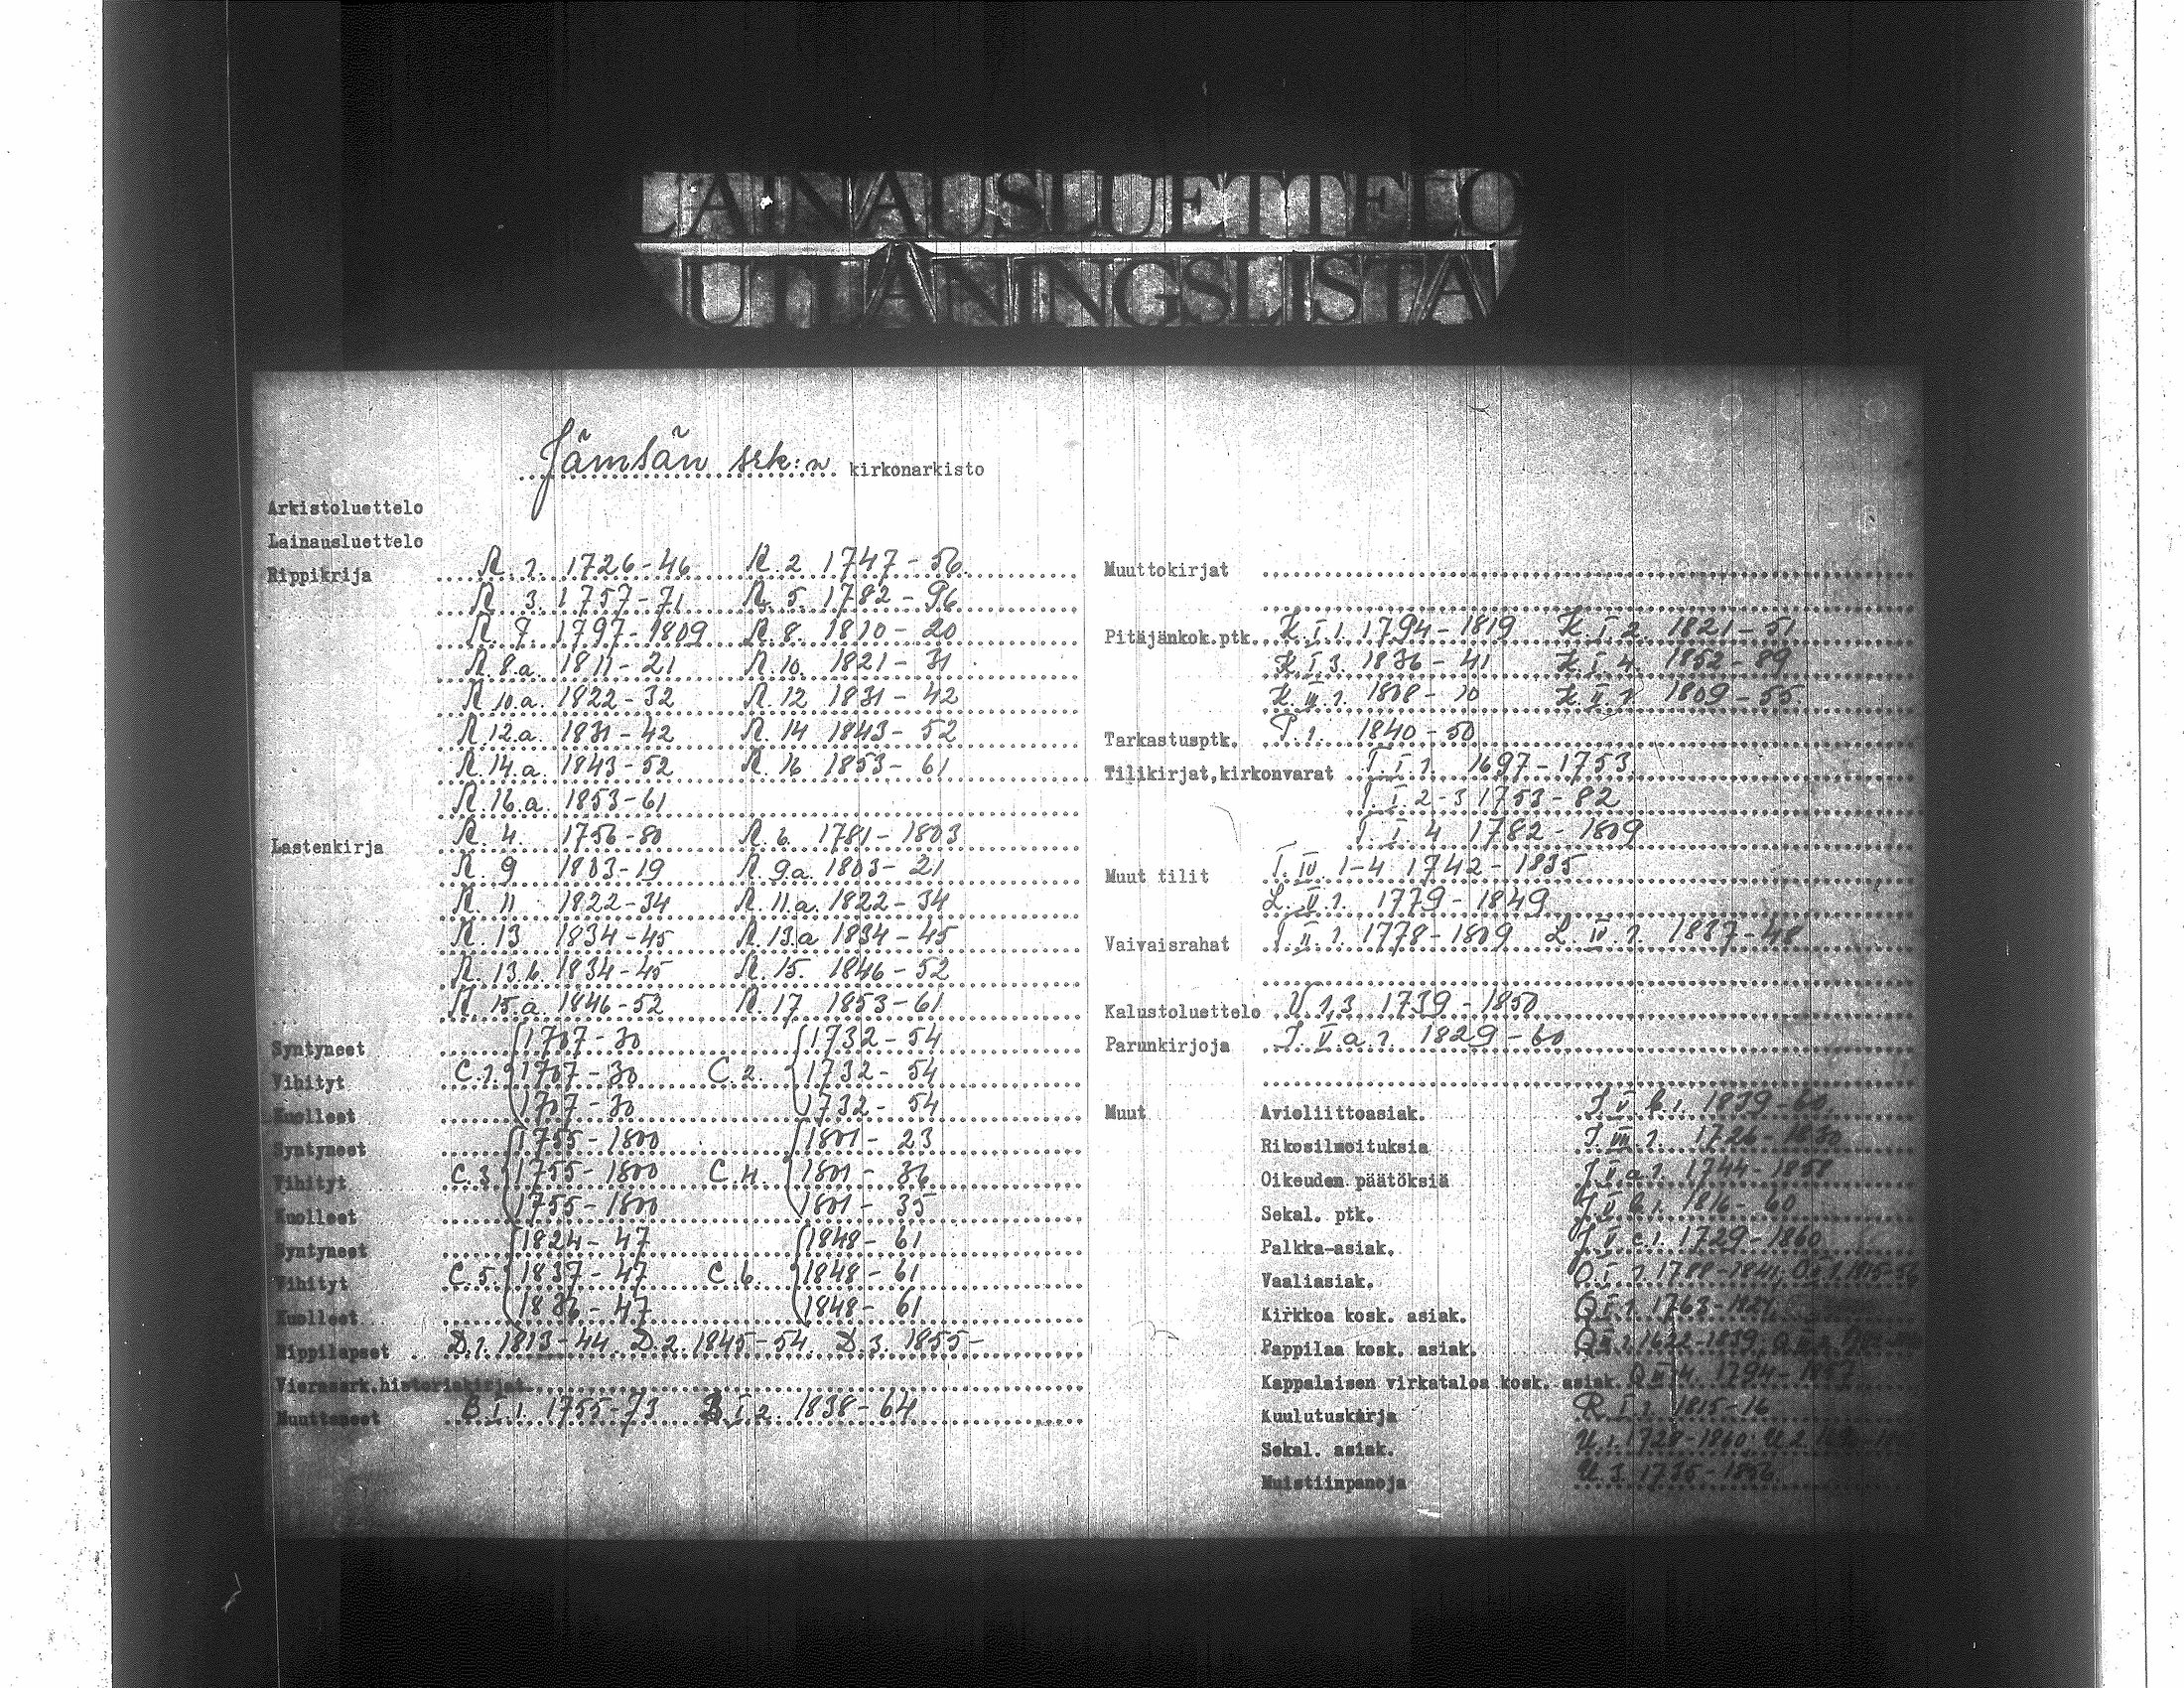 LAINAUSLUETTELO
UTLÅNINGSLISTA
Jämsän srk:n kirkonarkisto
Arkistoluettelo
Lainausluettelo
Rippikrija R. 1. 1726-46 R. 2 1747-56.
R. 3. 1757-71 R. 5. 1782-96
R. 7. 1797-1809 R. 8. 1810-20
R. 8.a. 1811-21 R. 10. 1821-31
R. 10.a. 1822-32 R. 12 1831-42
R. 12.a. 1831-42 R. 14 1843-52
R. 14.a. 1843-52 R. 16 1853-61
R. 16.a. 1853-61
Lastenkirja R. 4. 1756-80 R. 6. 1781-1803
R. 9 1803-19 R. 9.a. 1803-21
R. 11 1822-34 R. 11.a. 1822-34
R. 13 1834-45 R. 13.a 1834-45
R. 13.b. 1834-45 R. 15. 1846-52
R. 15.a. 1846-52 R. 17 1853-61
Syntyneet 1707-30 1732-54
Vihityt C.1. 1707-30 C.2. 1732-54
Kuolleet 1707-30 1732-54
Syntyneet 1755-1800 1801-23
Vihityt C.3. 1755-1800 C.4. 1801-36
Kuolleet 1755-1800 1801-35
Syntyneet 1824-47 1848-61
Vihityt C.5. 1837-47 C.6. 1848-61
Kuolleet 1836-47 1848-61
Rippilapset D.1. 1813-44 D.2. 1845-54 D.3. 1855-
Vierassrk.historiakirjat
Muuttaneet B I 1. 1755-73 B I 2. 1838-64
Muuttokirjat
Pitäjänkok.ptk. K I 1. 1794-1819 K I 2. 1821-51
K I 3. 1836-41 K I 4. 1852-89
K III 1. 1808-10 K II 1. 1809-55.
Tarkastusptk. P. 1. 1840-50
Tilikirjat,kirkonvarat T. I. 1. 1697-1753
T. I. 2-3 1753-82
T. I. 4 1782-1809
Muut tilit T. IV. 1-4 1742-1835
L. II. 1. 1779-1849
Vaivaisrahat T. II. 1. 1778-1809 L IV. 1. 1837-48
Kalustoluettelo V. 1,3 1739-1850
Parunkirjoja J. V. a. 1. 1829-60
Muut Avioliittoasiak. J V b 1. 1839-60
Rikosilmoituksia J. VIII 1. 1726-1830
Oikeuden päätöksiä J II a 1. 1744-1858
Sekal. ptk. 1816-60
Palkka-asiak. 1729-1860
Vaaliasiak. O I 1. 1788-1841,
Kirkkoa kosk. asiak. Q I 1. 1763-
Pappilaa kosk. asiak. Q II 1. 1622-1839,
Kappalaisen virkataloa kosk. asiak. 1794-1857
Kuulutuskirja R. I 1. 1815-16
Sekal. asiak. U. 1. 1728-1860.
Muistiinpanoja U. 3. 1735-1856.